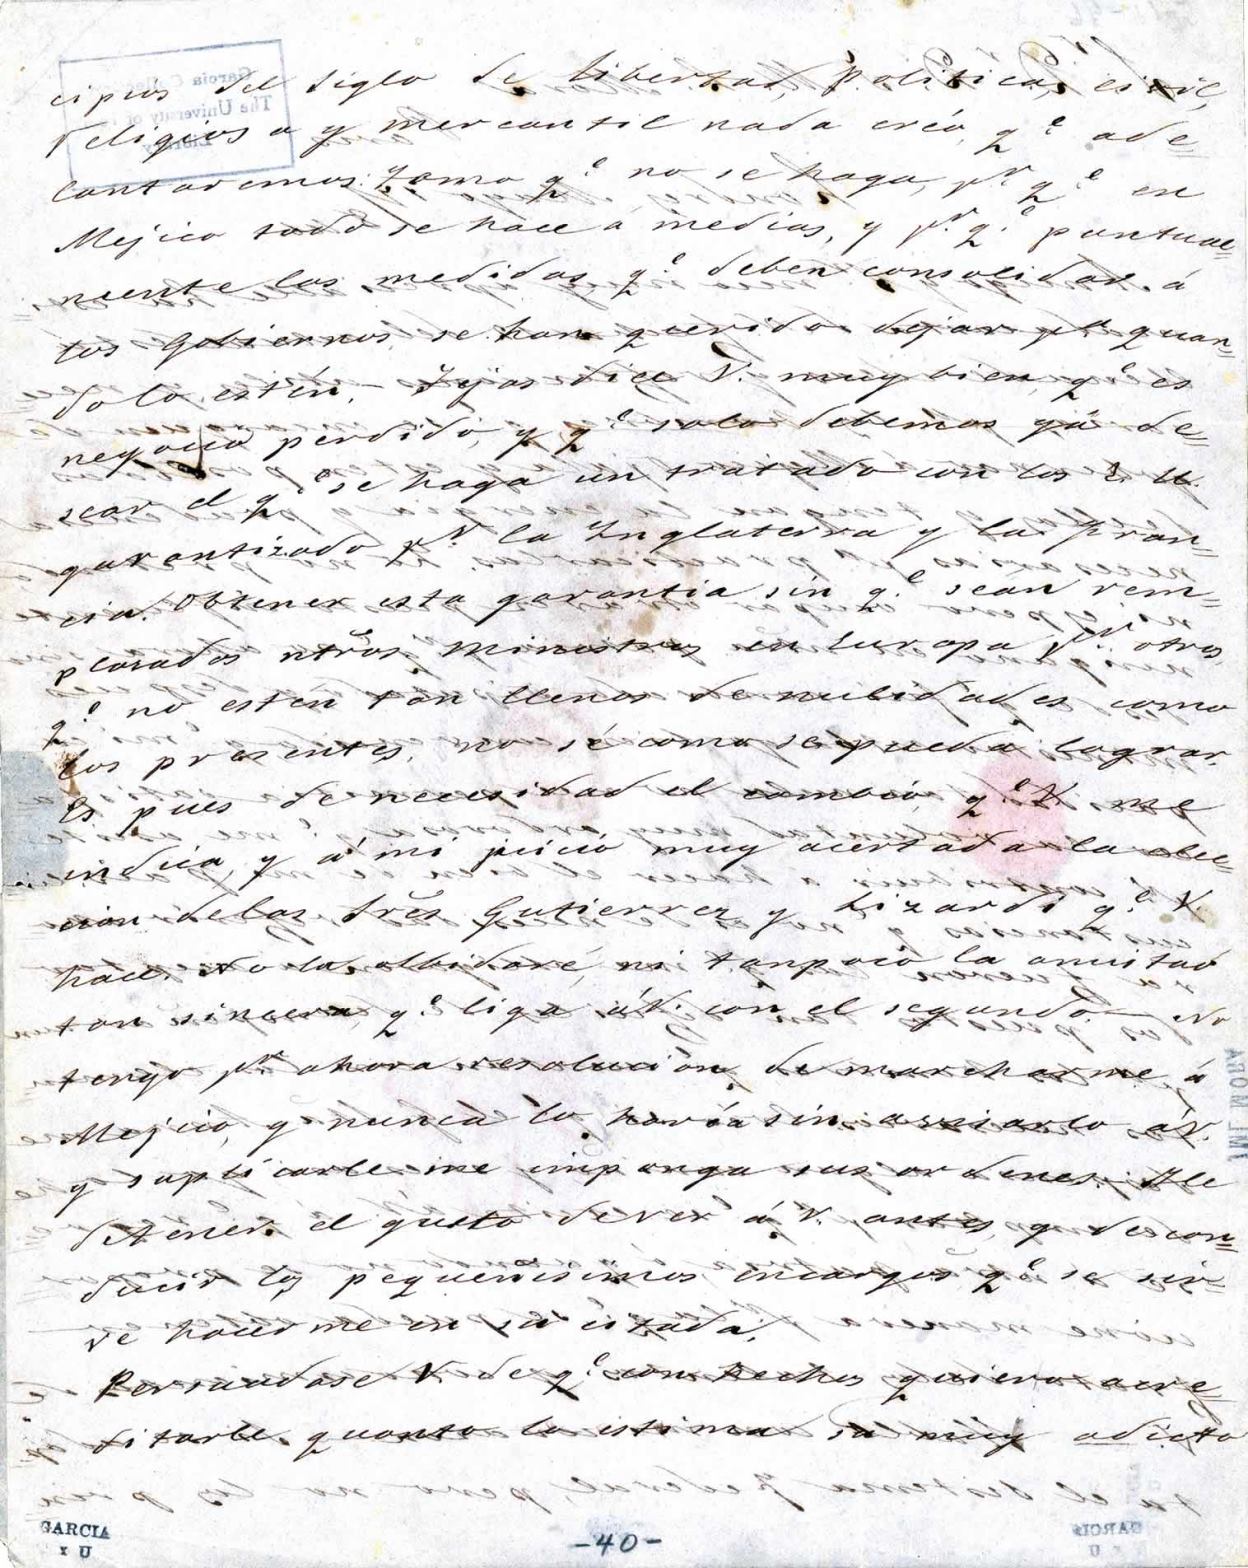 cipios del siglo de libertad, política, civil,
religiosa y mercantil nada creo, q.e ade=
lantaremos: Temo q.e no se haga, p.r q.e en
Mejico todo se hace á medias, y p.r q.e puntual=
mente las medidas q.e deben consolidar á
los Gobiernos, se han querido dejar p.a quan=
do lo estén. Tejas dice V. muy bien q.e es
negocio perdido, y q.e solo debemos yá de=
sear el q.e se haga un tratado con los E. U.
garantizado p.r la Inglaterra y la Fran=
cia. Obtener esta garantia sin q.e sean rem=
plasados ntros. Ministros en Europa p.r otros,
q.e no estén tan llenos de nulidades como
los presentes, no sé como se pueda lograr.
Es pues de necesidad el cambio q.e V. me
indica, y á mi juicio muy acertada la elec=
ción de los Sres. Gutierrez y Lizardi q.e V.
hace. No la olbidaré, ni tampoco la amistad
tan sincera q.e liga á V. con el segundo. No
tengo p.r ahora resolución de marcharme á
Mejico, y nunca lo haria sin avisarlo á V.
y suplicarle me imponga sus ordenes. He
de tener el gusto de ver á V. antes, y de con=
ducir los pequeñisimos encargos q.e se sir=
ve hacerme en su citada.
Persuadase V. de q.e con hechos quiero acre=
ditarle quanto lo estima su muy adicto
GARCIA
-40-